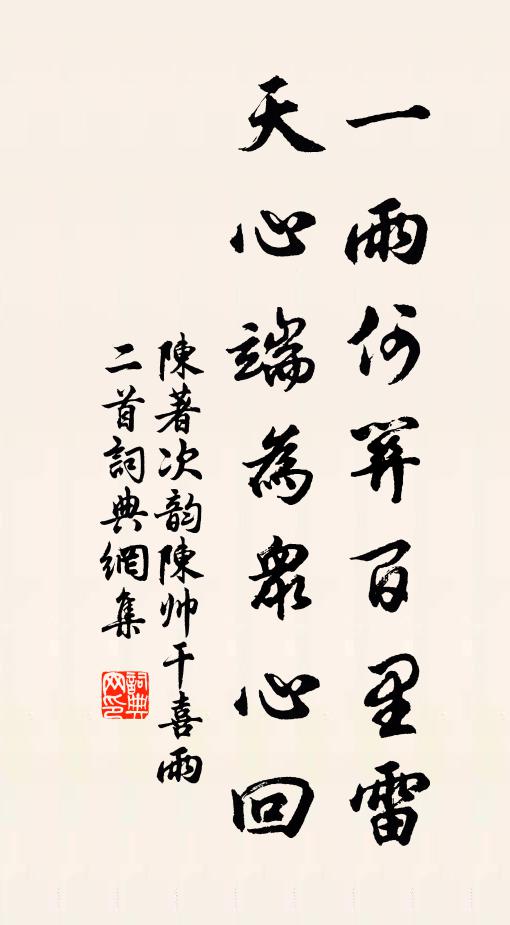 一雨何算百里雷
天心端為衆心回
陳著次韵陳帅干喜雨
二首詞典網集
詞典网印